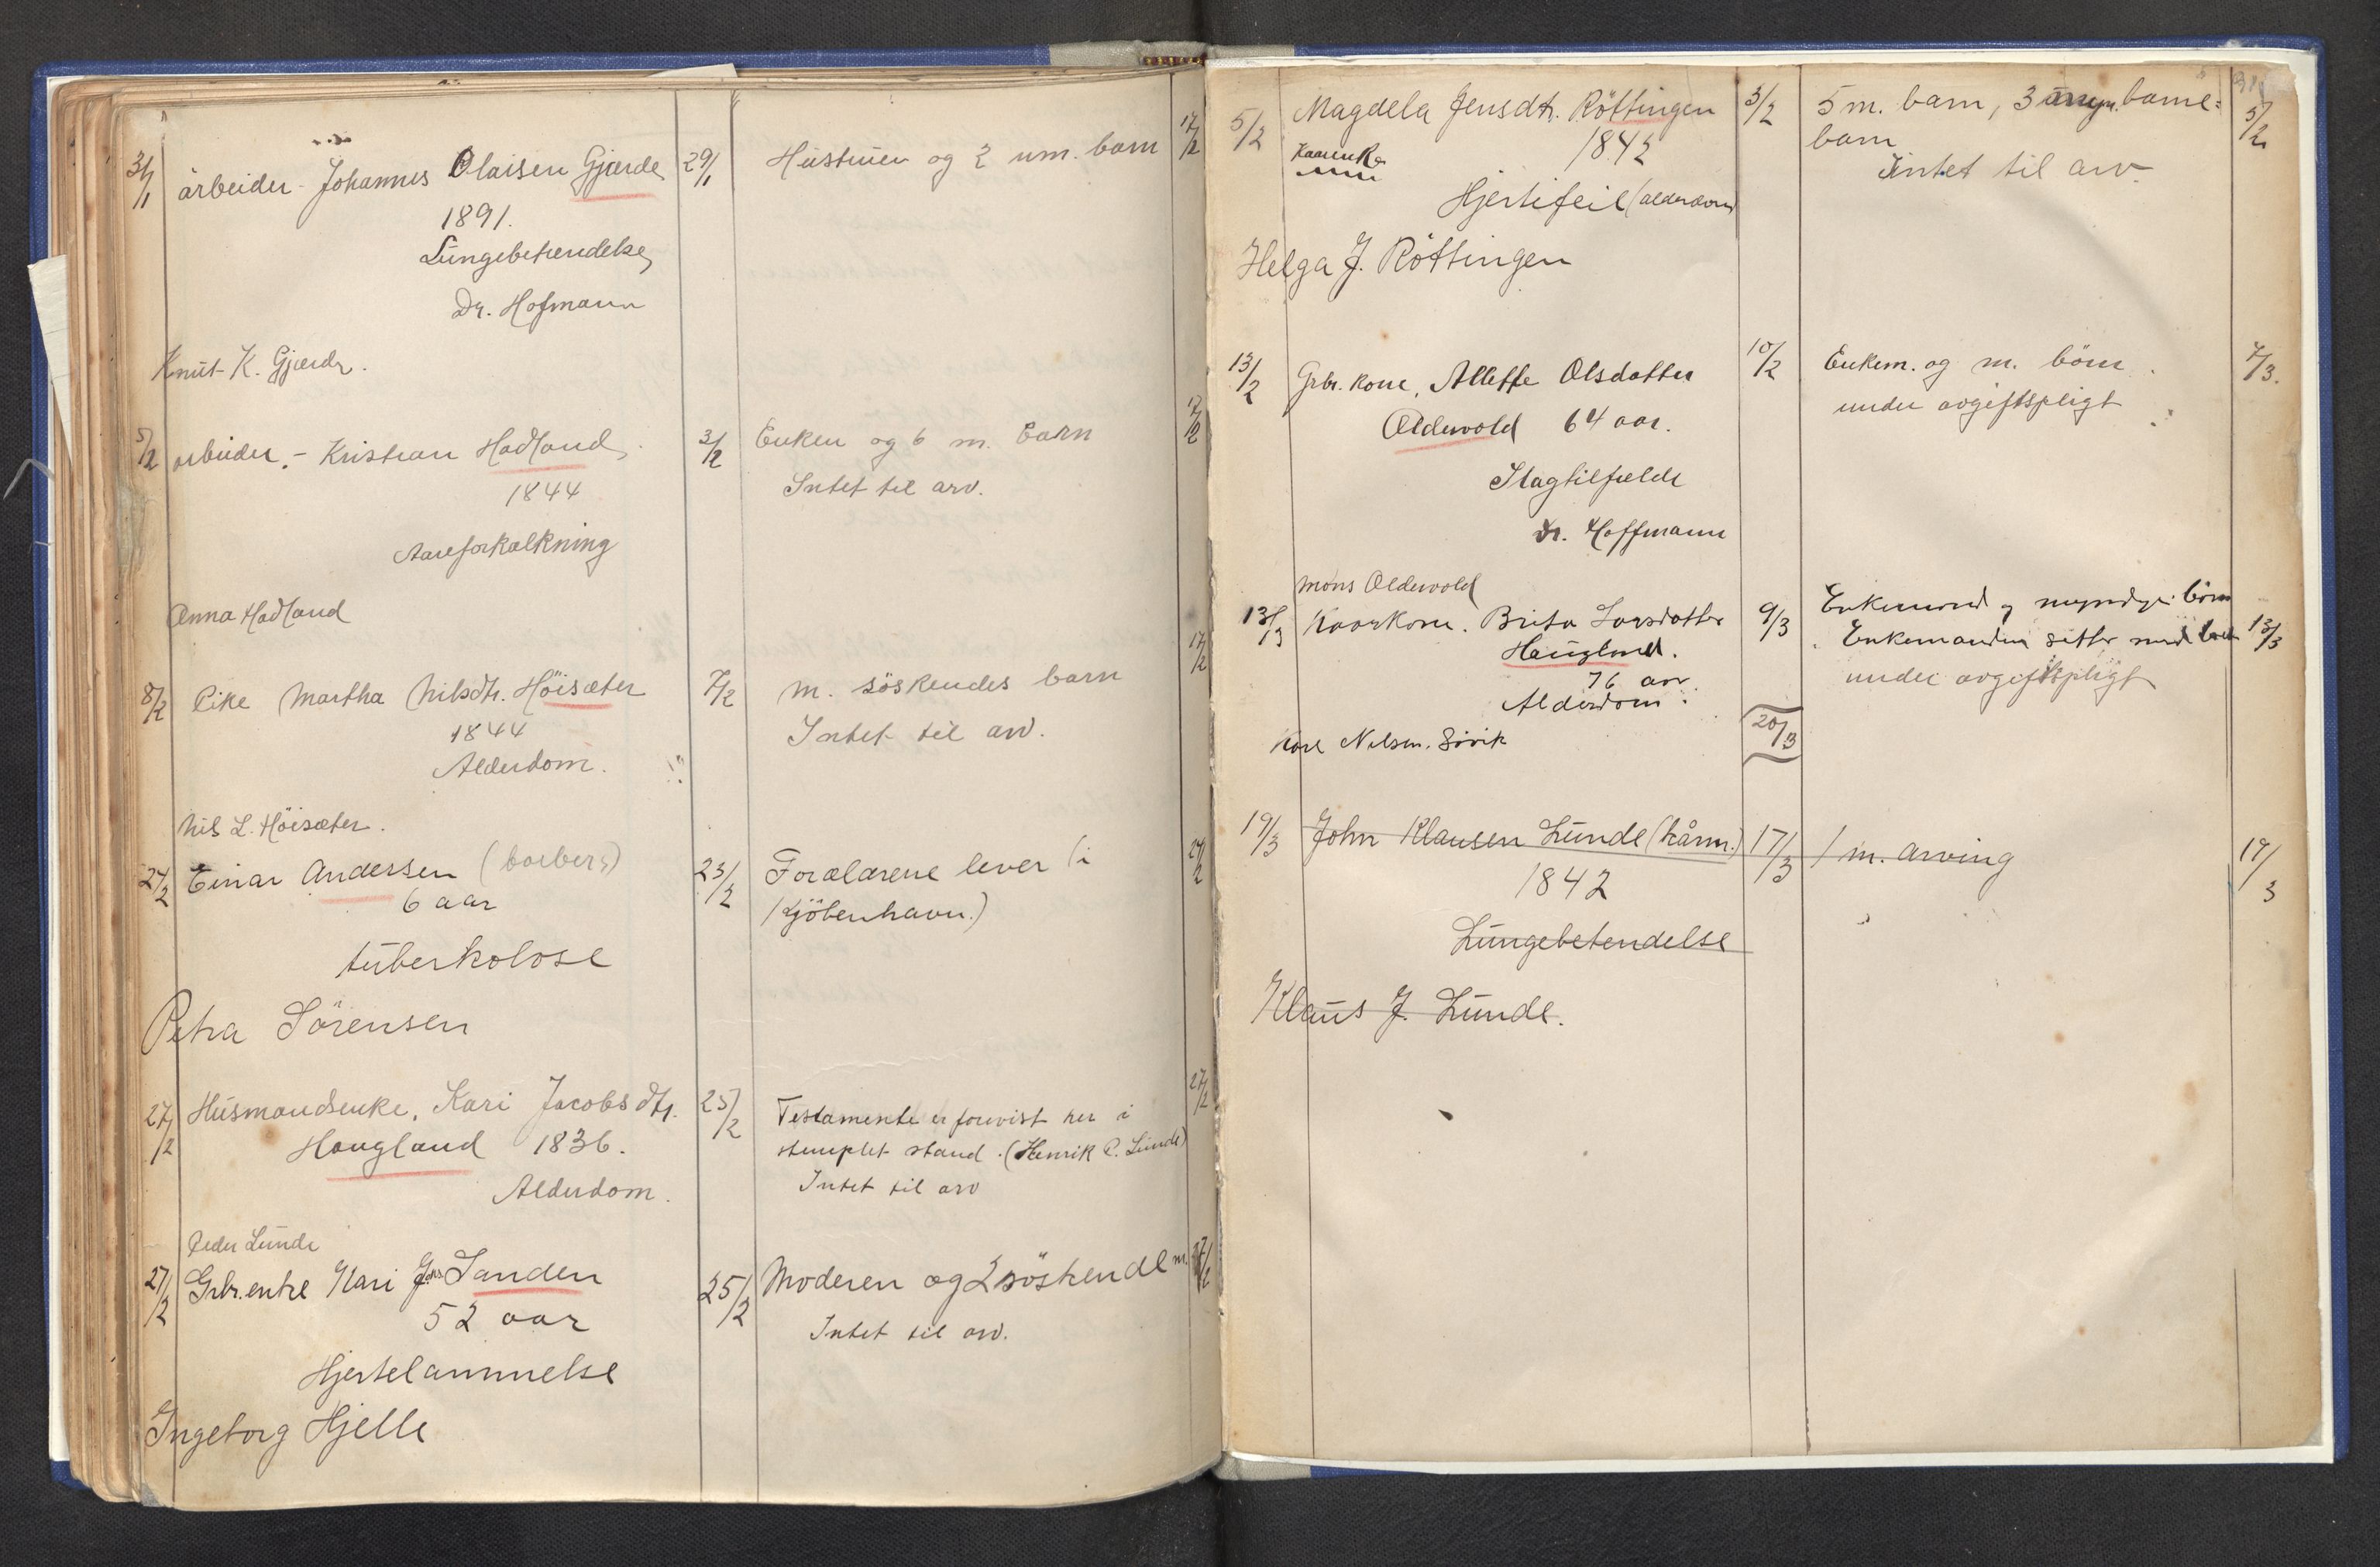 31/1 arbeider - Johannes Olaisen Gjærde 29/1 Hustruen og 2 um. barn 17/2
1891.
Lungebetændelse
Dr. Hofmann
Knut K. Gjærde.
5/2 arbeider. - Kristian Hadland 3/2 Enken og 6 m. barn 17/2
1844 Intet til arv.
Aareforkalkning
Anna Hadland
8/2 Pike Martha Nilsdtr. Höisæter 7/2 m. söskendes barn 17/2
1844 Intet til arv.
Alderdom.
Nils L. Höisæter.
27/2 Einar Andersen (barbers) 23/2 Forælærene lever (i 27/2
6 aar Kjöbenhavn.)
tuberkolose
Petra Sörensen
27/2 Husmandsenke, Kari Jacobsdtr. 25/2 Testamente er forevist her i 27/2
Haugland 1836. stemplet stand. (Henrik P. Lunde)
Alderdom. Intet til arv
Peder Lunde
27/2 Grbr.enke Kari Sanden 25/2 Moderen og 2 söskende m. 27/2
52 aar Intet til arv.
Hjertelammelse
Ingeborg Hjelle
5/2 Magdela Jensdtr. Röttingen 3/2 5 m. barn, 3 barne= 5/2
Kaarenke 1842 barn
Hjertefeil (alderdom) Intet til arv.
Helga J. Röttingen
13/2 Grbr. kone, Allette Olsdatter 10/2 Enkem. og m. börn. 7/3.
Oldervold 64 aar. under avgiftspligt
Slagtilfælde
Dr. Hoffmann
Mons Oldervold
13/3 Kaarkone. Brita Larsdatter 9/3 Enkemand og myndige börn 13/3
Haugland. Enkemanden sitter med boet
76 aar. under avgiftspligt
Alderdom.
Karl Nilsen. Sörvik 20/3
19/3 John Klausen Lunde (kårm.) 17/3 1 m. arving 19/3
1842
Lungebetendelse
Klaus J. Lunde.